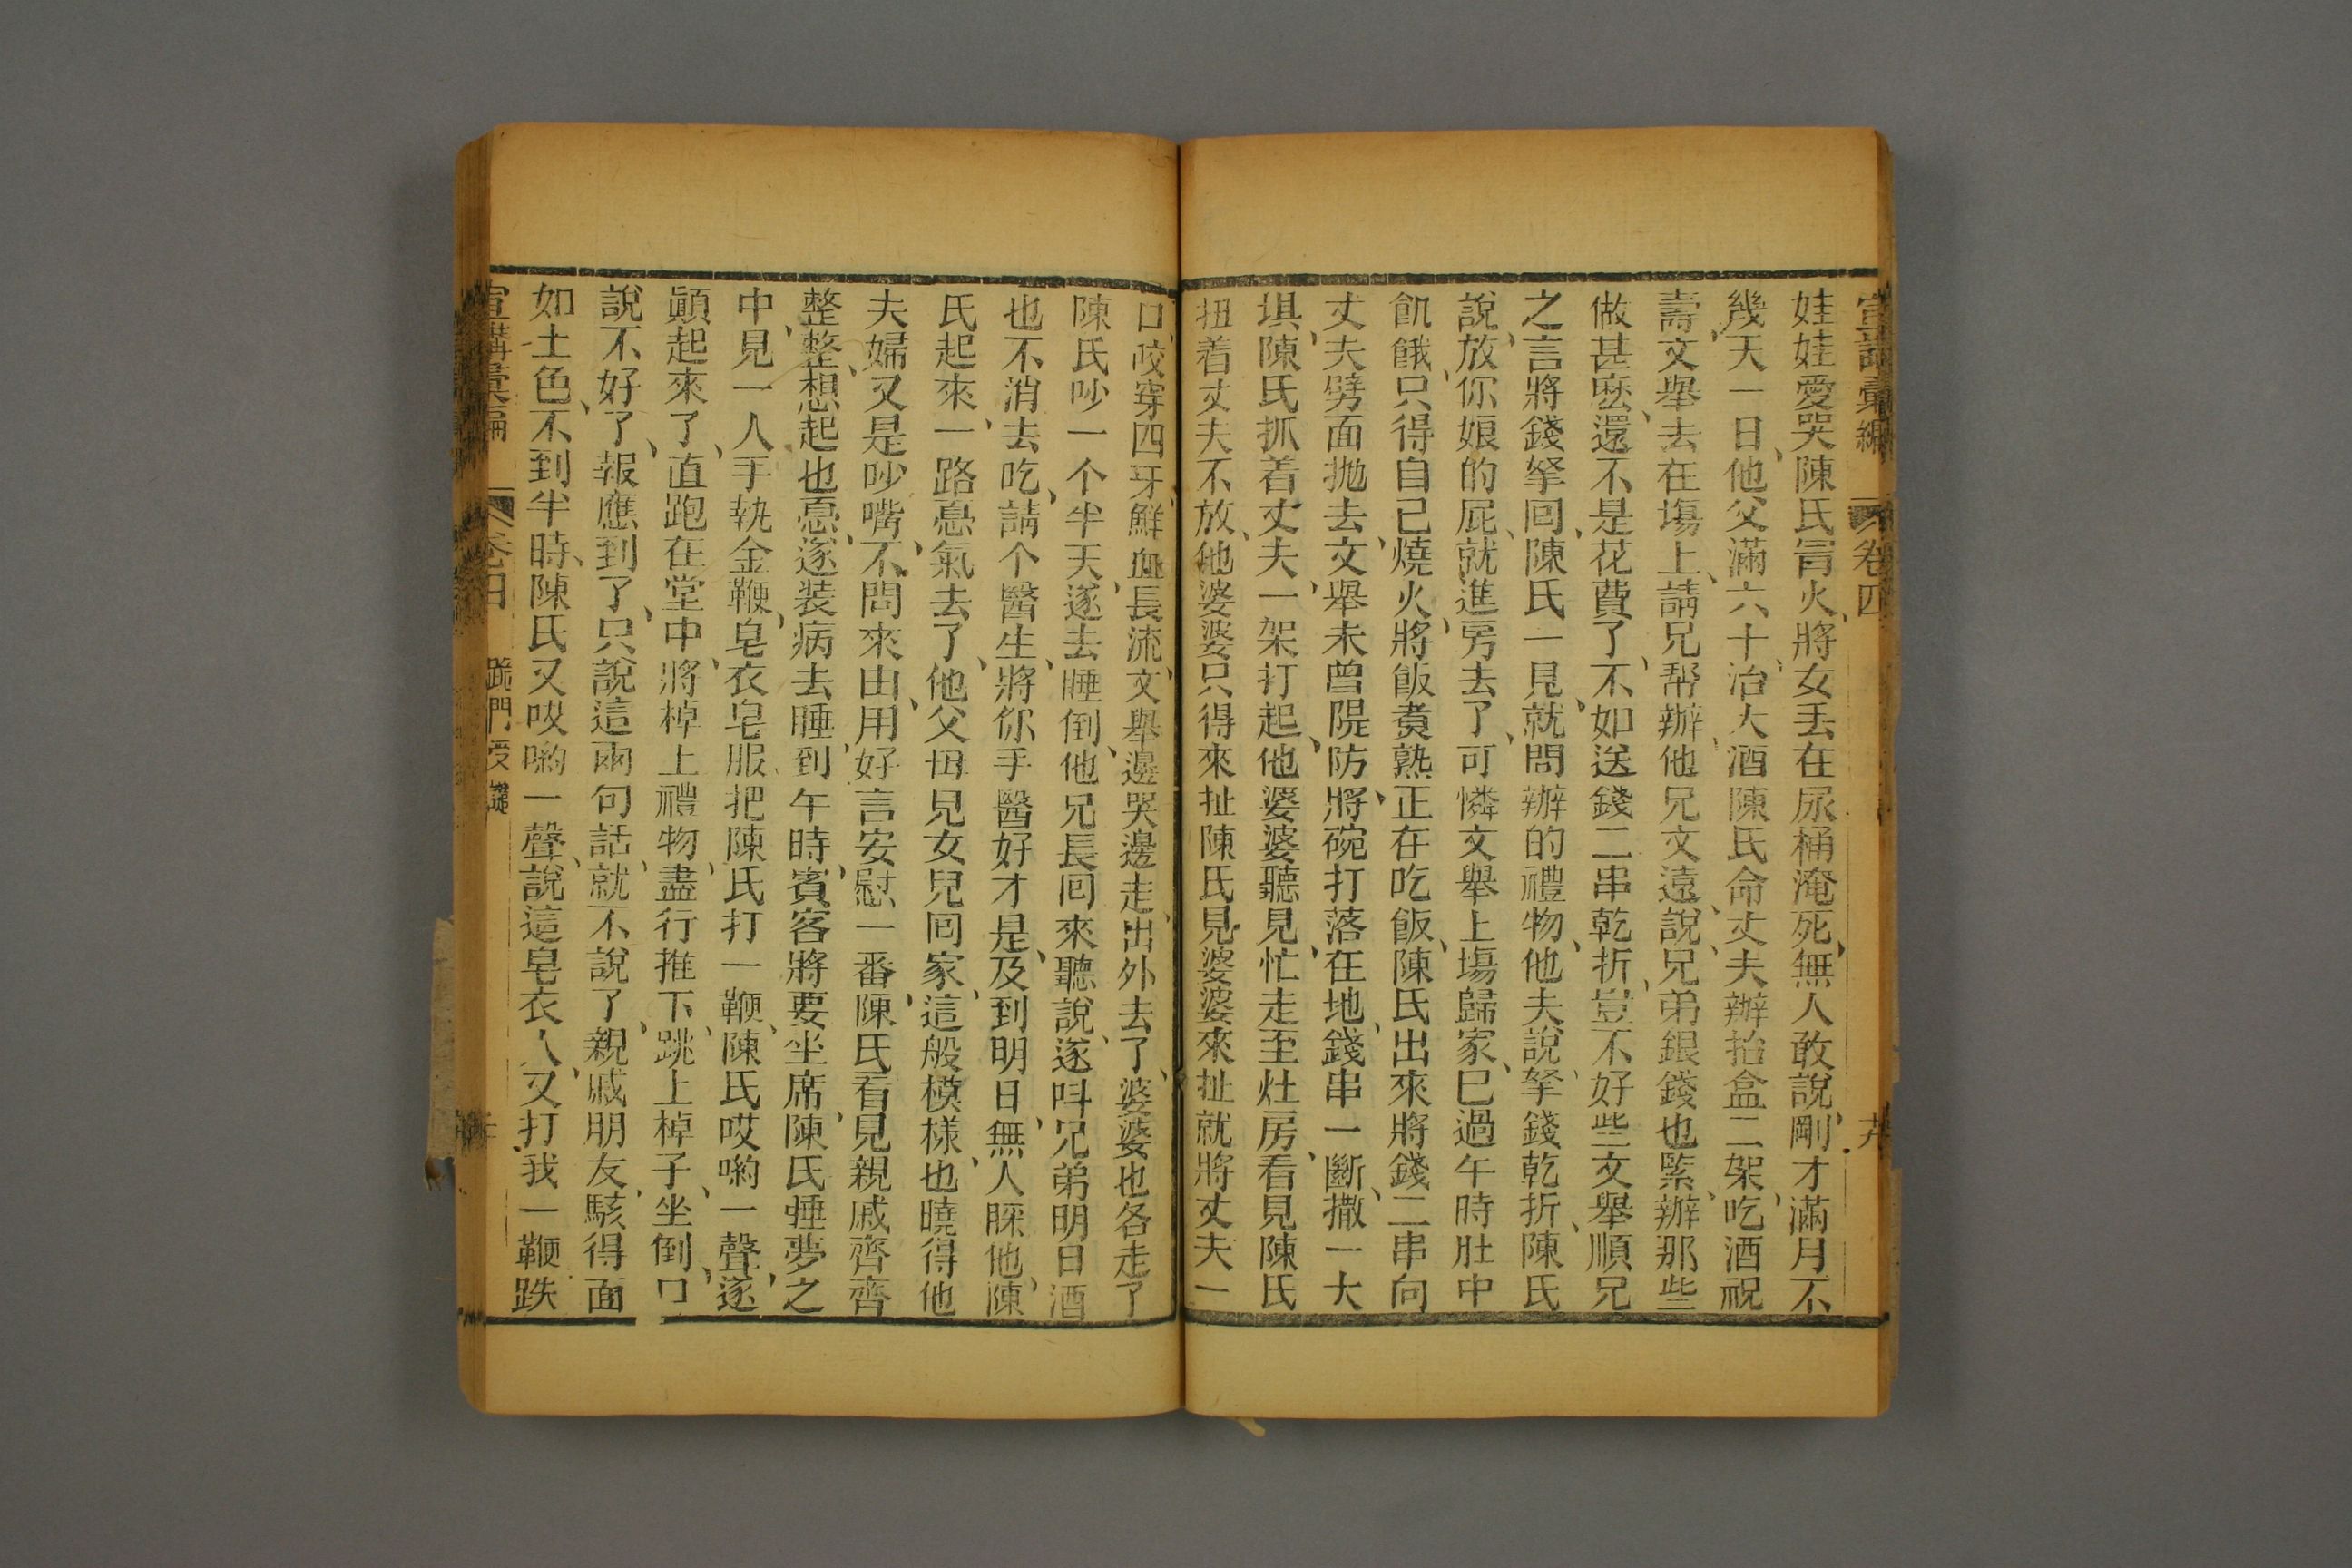 宣講彙編 卷四
娃娃愛哭陳氏冒火、將女丢在尿桶淹死、無人敢說、剛才滿月不
幾天、一日、他父滿六十、治大酒陳氏命丈夫辦抬盒二架、吃酒祝
壽、文舉去在塲上、請兄帮辦、他兄文遠說、兄弟銀錢也緊、辦那些
做甚麽、還不是花費了、不如送錢二串乾折、豈不好些文舉順兄
之言將錢拏回、陳氏一見、就問辦的禮物、他夫說、拏錢乾折、陳氏
說、放你娘的屁、就進房去了、可憐文舉上塲歸家、已過午時肚中
飢餓、只得自己燒火、將飯煑熟正在吃飯、陳氏出來將錢二串向
丈夫劈面抛去、文舉未曾隄防、將碗打落在地、錢串一斷、撒一大
塡、陳氏抓着丈夫、一架打起、他婆婆聽見、忙走至灶房、看見陳氏
扭着丈夫不放、他婆婆只得來扯陳氏見婆婆來扯就將丈夫一
口、咬穿四牙、鮮血長流、文舉邊哭邊走、出外去了、婆婆也各走了
陳氏吵一个半天、遂去睡倒、他兄長回來聽說、遂呌兄弟明日酒
也不消去吃、請个醫生、將你手醫好才是、及到明日、無人睬他、陳
氏起來、一路慪氣去了、他父母見女兒回家、這般模樣、也曉得他
夫婦又是吵嘴、不問來由、用好言安慰一番、陳氏看見親戚齊齊
整整、想起也慪、遂装病去睡、到午時、賓客將要坐席、陳氏睡夢之
中、見一人手執金鞭、皂衣皂服、把陳氏打一鞭、陳氏哎喲一聲、遂
顚起來了、直跑在堂中、將棹上禮物、盡行推下、跳上棹子、坐倒、口
說不好了、報應到了、只說這兩句話、就不說了、親戚朋友、駭得面
如土色、不到半時、陳氏又哎喲一聲、說這皂衣人、又打我一鞭跌
宣講彙編 卷四 跪門受